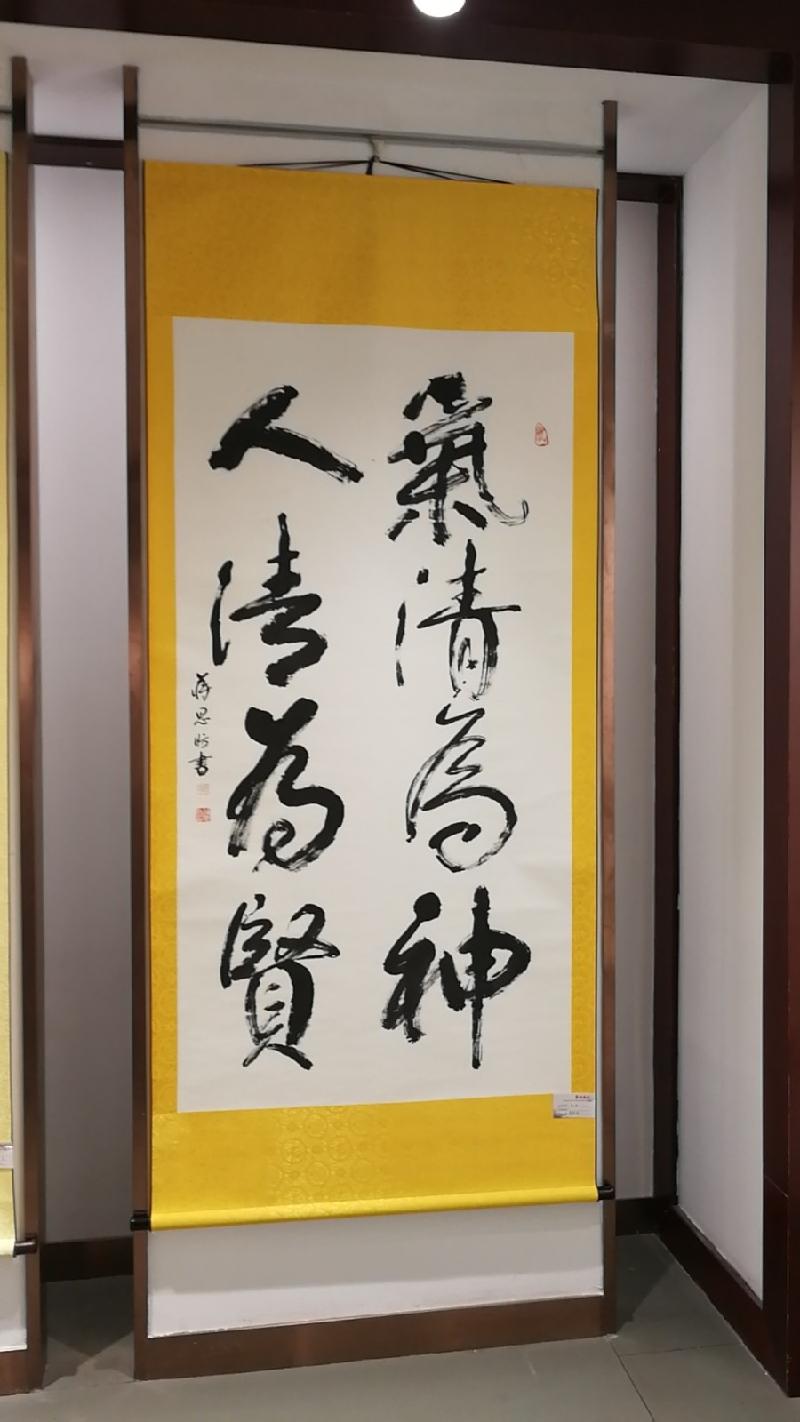 氣清為神
人清為賢